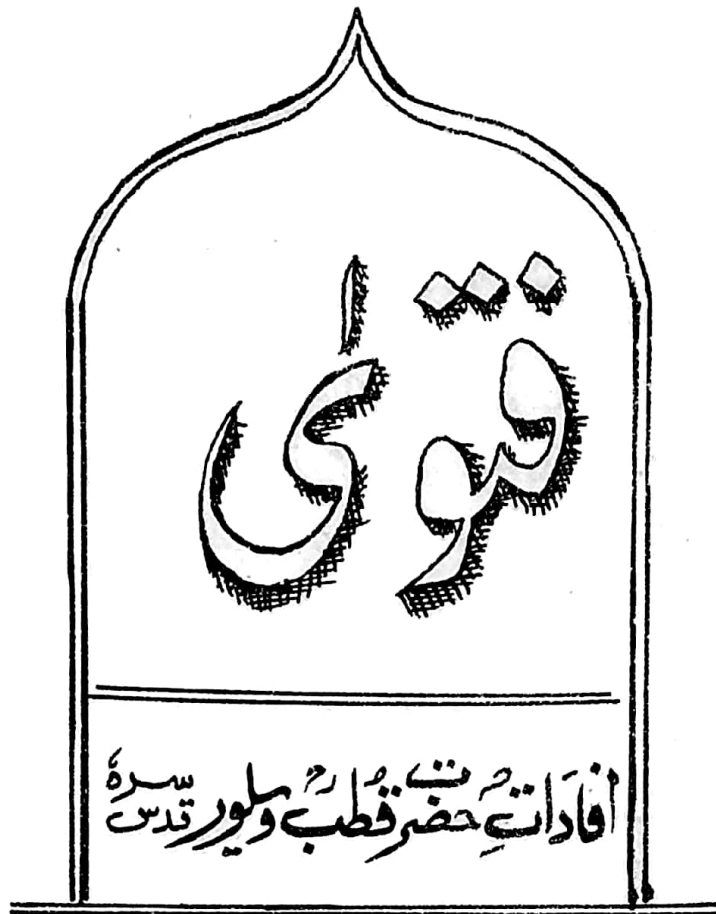 فتویٰ
افاداتِ حضرت قطب ویلور قدس سرہٗ